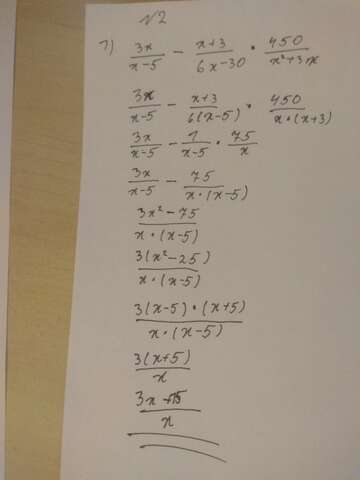 √2
1) 3x/(x-5) - (x+3)/(6x-30) · 450/(x²+3x)
3x/(x-5) - (x+3)/(6(x-5)) · 450/(x·(x+3))
3x/(x-5) - 1/(x-5) · 75/x
3x/(x-5) - 75/(x·(x-5))
(3x²-75)/(x·(x-5))
3(x²-25)/(x·(x-5))
3(x-5)·(x+5)/(x·(x-5))
3(x+5)/x
(3x+15)/x